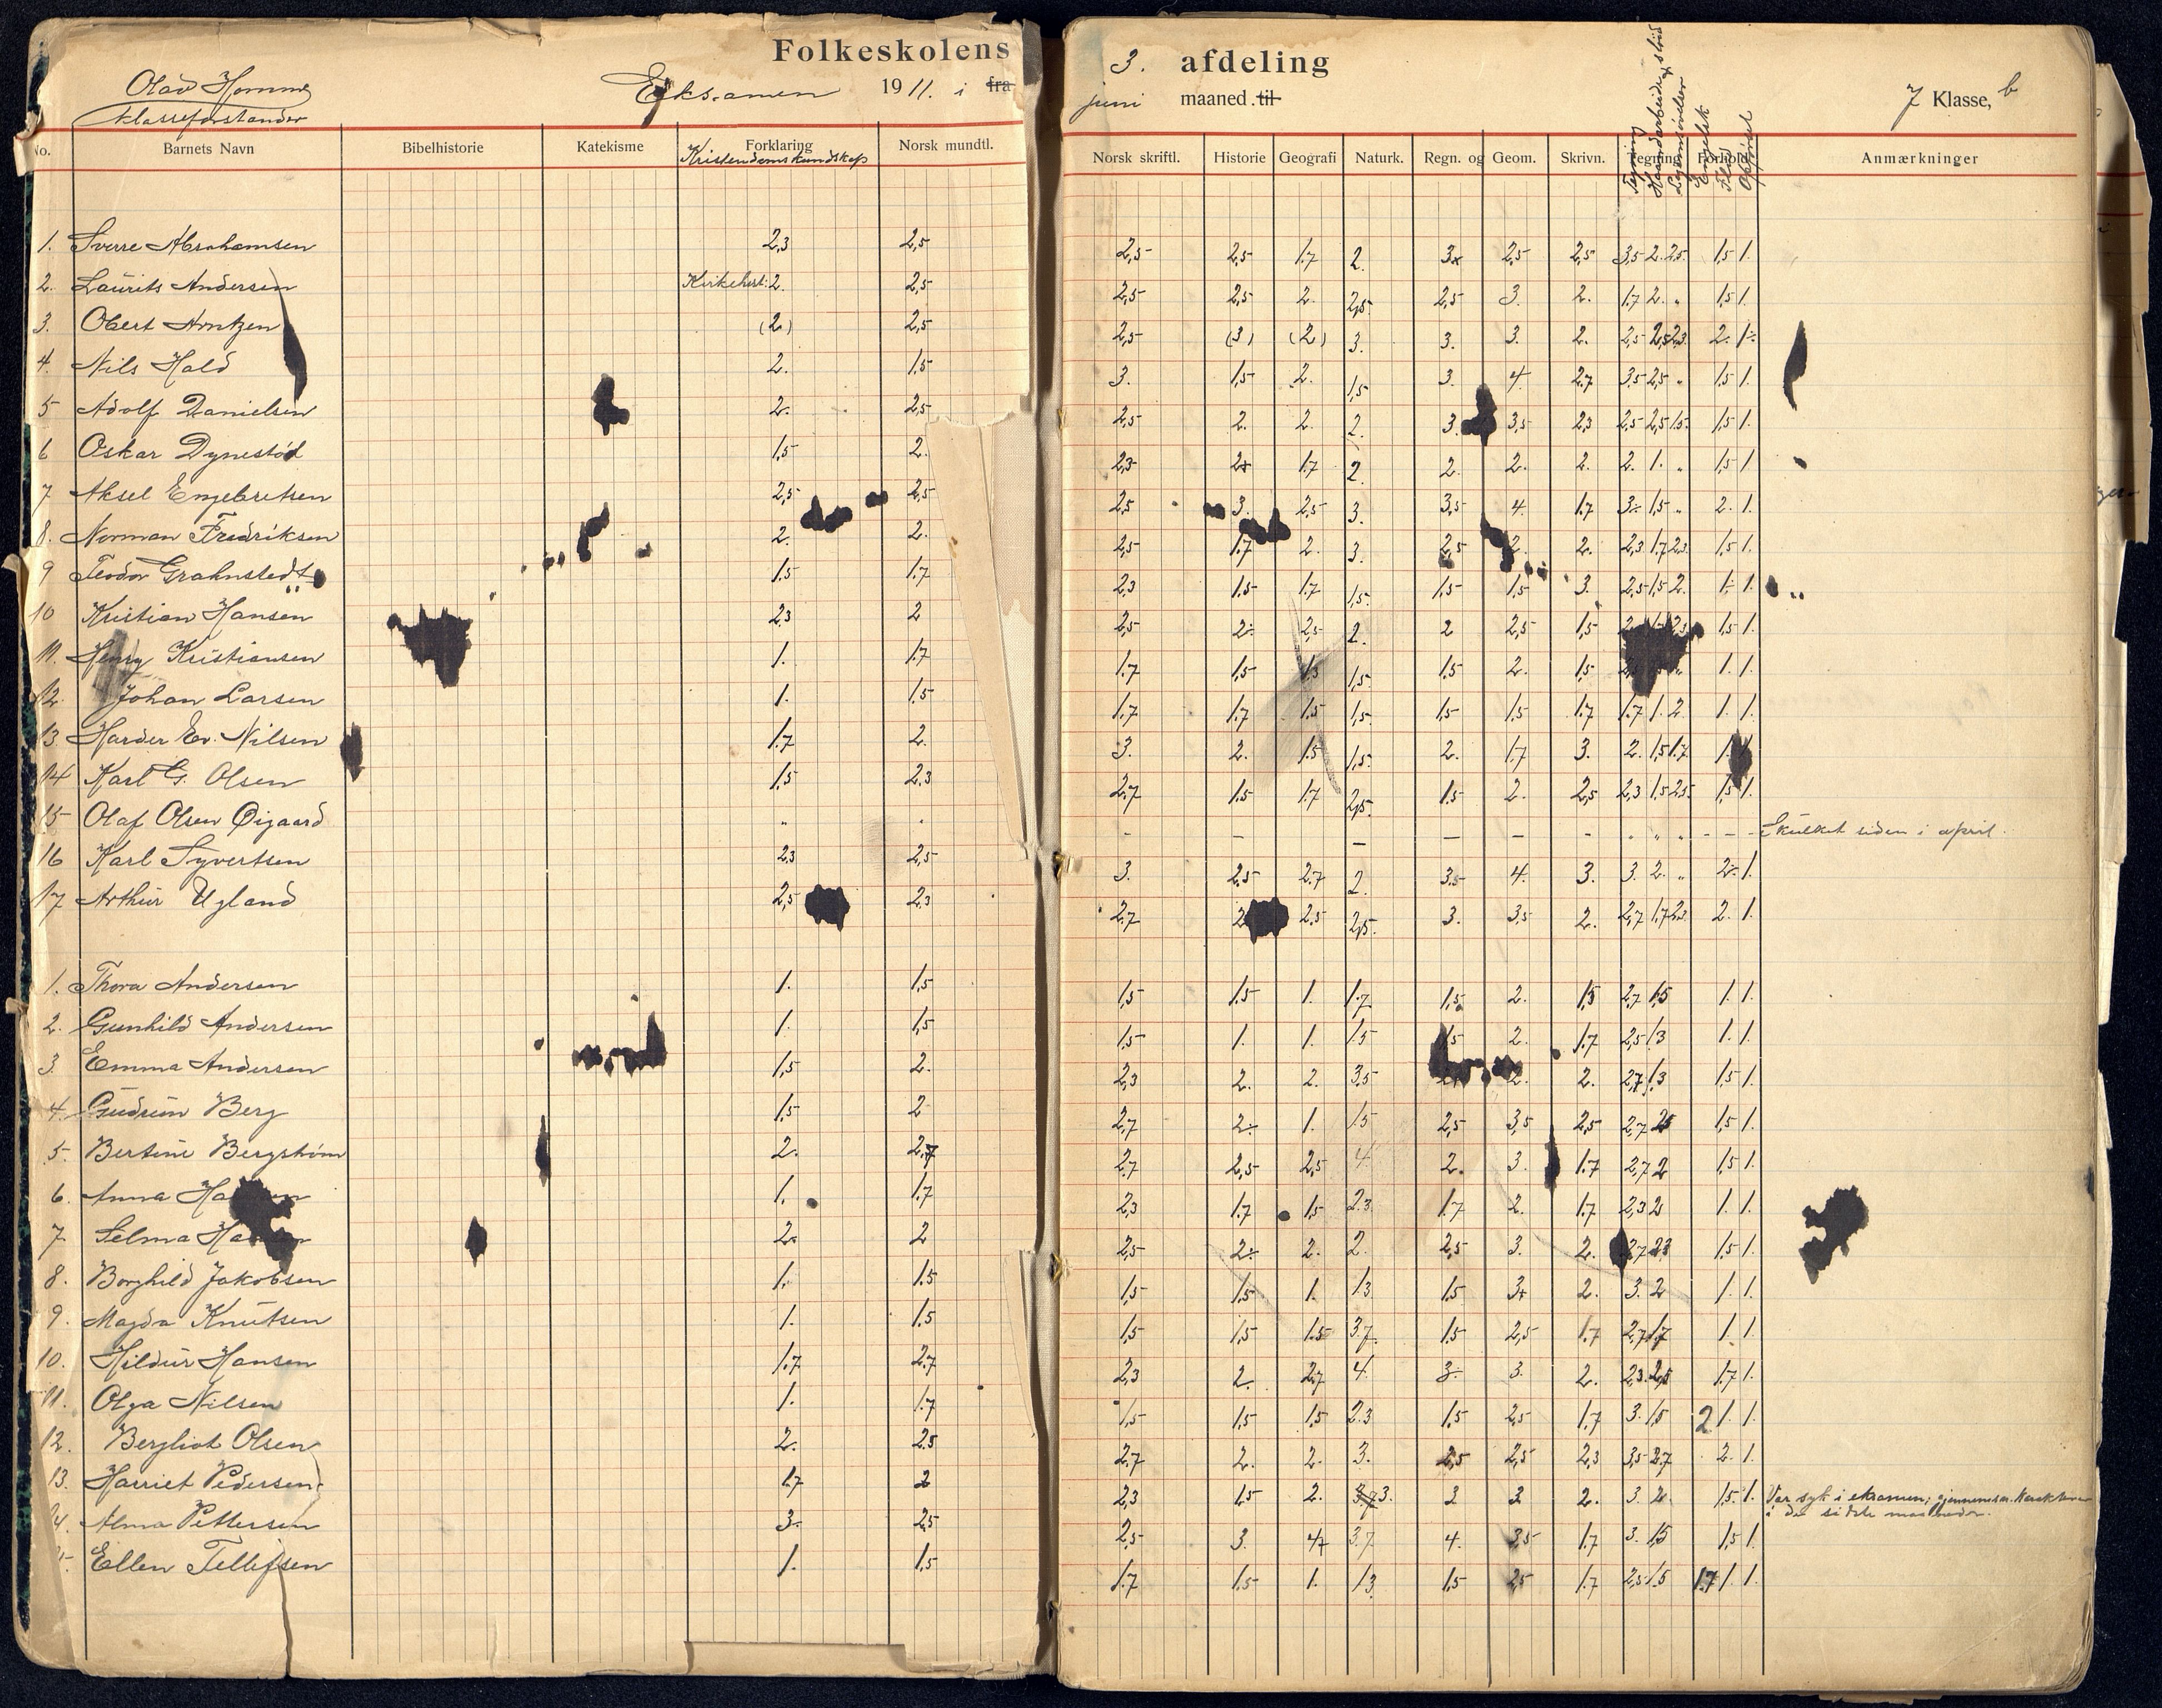 Folkeskolens 3. afdeling
Olav Homme
Klasseforstander
Eksamen 1911. i fra juni maaned til 7 Klasse, b
No. Barnets Navn Bibelhistorie Katekisme Forklaring Norsk mundtl. Norsk skriftl. Historie Geografi Naturk. Regn. og Geom. Skrivn. Tegning Forhold Anmærkninger
Kristendomskundskap
Tegning
Haandarbeide & sløid
Legemsøvelser
Engelsk
Flid
Opførsel
1. Sverre Abrahamsen 2,3 2,5 2,5 2,5 1.7 2. 3x 2,5 2,5 3,5 2. 2.5. 1,5 1.
2. Laurits Andersen Kirkehist: 2. 2,5 2,5 2,5 2. 2,5. 2,5 3. 2. 1.7 2. " 1,5 1.
3. Obert Arntzen (2) 2,5 2,5 (3) (2) 3. 3. 3. 2. 2,5 2,5 2.3. 2. 1÷
4. Nils Hald 2. 1.5 3. 1,5 2. 1,5. 3. 4. 2.7 3,5 2,5 " 1,5 1.
5 Adolf Danielsen 2. 2,5 2,5 2. 2. 2. 3. 3,5 2,3 2,5 2,5 1.5. 1,5 1.
6 Oskar Dynestøl 1,5 2. 2,3 2+ 1.7 2. 2. 2. 2. 2. 1. " 1,5 1
7 Aksel Engebretsen 2,5 2,5 2,5 3. 2,5 3. 3,5 4. 1.7 3÷ 1,5 " 2. 1.
8. Norman Fredriksen 2. 2. 2,5 1.7 2. 3. 2,5 2. 2. 2,3 1.7 2.3. 1,5 1.
9 Teodor Grahnstedt 1.5 1.7 2,3 1.5 1.7 1,5. 1,5 1,5 3. 2,5 1,5 2. 1÷ 1.
10 Kristian Hansen 2,3 2 2,5 2÷ 2,5 2. 2 2,5 1,5 1,5 1.
11. Henry Kristiansen 1. 1.7 1.7 1,5 1,5 1,5. 1.5 2. 1,5 1. 1.
12. Johan Larsen 1. 1,5 1.7 1.7 1.5 1,5. 1,5 1,5 1.7 1.7 1. 2. 1. 1.
13. Harder Ev. Nilsen 1.7 2. 3. 2. 1.5 1,5. 2. 1.7 3. 2. 1,5 1.7
14 Karl G. Olsen 1.5 2.3 2.7 1.5 1.7 2,5. 1.5 2. 2,5 2,3 1.5 2.5. 1,5 1.
15 Olaf Olsen Øigaard " " - - - - - - - " " " - - Skulket siden i april.
16 Karl Syvertsen 2.3 2,5 3. 2.5 2.7 2. 3.5 4. 3. 3. 2. " 2÷ 1.
17 Arthur Ugland 2,5 2.3 2.7 2 2.5 2,5. 3. 3,5 2. 2,7 1.7 2.3. 2. 1.
1. Thora Andersen 1. 1,5 1,5 1.5 1. 1.7 1,5 2. 1,5 2,7 1,5 1. 1.
2. Gunhild Andersen 1. 1,5 1,5 1. 1. 1.5 1,5 2. 1.7 2,5 1.3 1. 1.
3. Emma Andersen 1,5 2. 2,3 2. 2. 3,5 2. 2. 2,7 1.3 1,5 1.
4. Gudrun Berg 1,5 2 2,7 2÷ 1. 1.5 2,5 3,5 2,5 2,7 2,5 1,5 1.
5. Bertine Bergstrøm 2. 2,7 2,7 2,5 2,5 4. 2. 3. 1.7 2,7 2 1,5 1.
6. Anna Ha 1. 1.7 2,3 1.7 1.5 2.3 1.7 2. 1.7 2,3 2 1. 1.
7. Selma Ha 2. 2 2,5 2÷ 2. 2. 2,5 3. 2. 2,7 2,3 1,5 1.
8. Borghild Jakobsen 1. 1.5 1,5 1,5 1. 1.3 1.5 3+ 2. 3. 2 1. 1.
9. Magda Knutsen 1. 1.5 1,5 1,5 1.5 3.7 1.5 2,5 1.7 2,7 1.7 1. 1.
10. Hildur Hansen 1.7 2.7 2,3 2. 2.7 4. 3÷ 3. 2. 2,3. 2,5 1.7 1.
11. Olga Nilsen 1. 1.7 1,5 1,5 1,5 2.3 1,5 2,5 1.7 3. 1,5 2 1. 1.
12. Bergliot Olsen 2. 2.5 2.7 2. 2. 3. 2,5 2,5 2,3 3,5 2,7 2. 1.
13. Harriet Pedersen 1.7 2 2,3 1.5 2. 3,7 3. 2 2 2. 3. 2. 1.5. 1. Var syk i eksamen; gjennemsn. karakterer
i de sidste maaneder.
4. Alma Pettersen 3. 2,5 2,5 3. 4+ 3.7 4. 3,5 1.7 3. 1,5 1,5 1.
5. Ellen Tellefsen 1. 1,5 1.7 1.5 1. 1.3 1.5 2,5 1.7 2,5 1.5 1.7 1. 1.